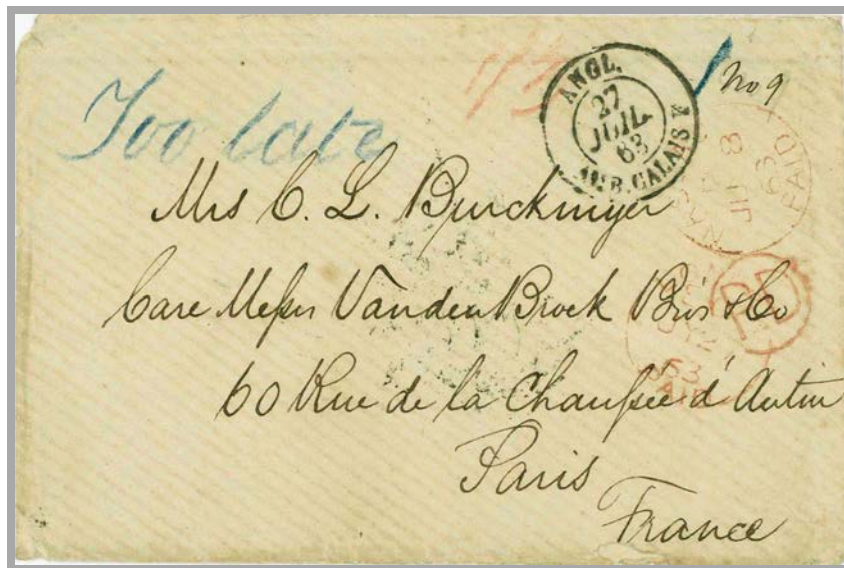 Too late
1/3
No 9
ANGL.
27
JUIL.
63
AMB. CALAIS
63
PAID
PD
63
PAID
Mrs C. L. Burckmyer
Care Messrs VandenBroek Bros & Co
60 Rue de la Chaussée d'Antin
Paris
France